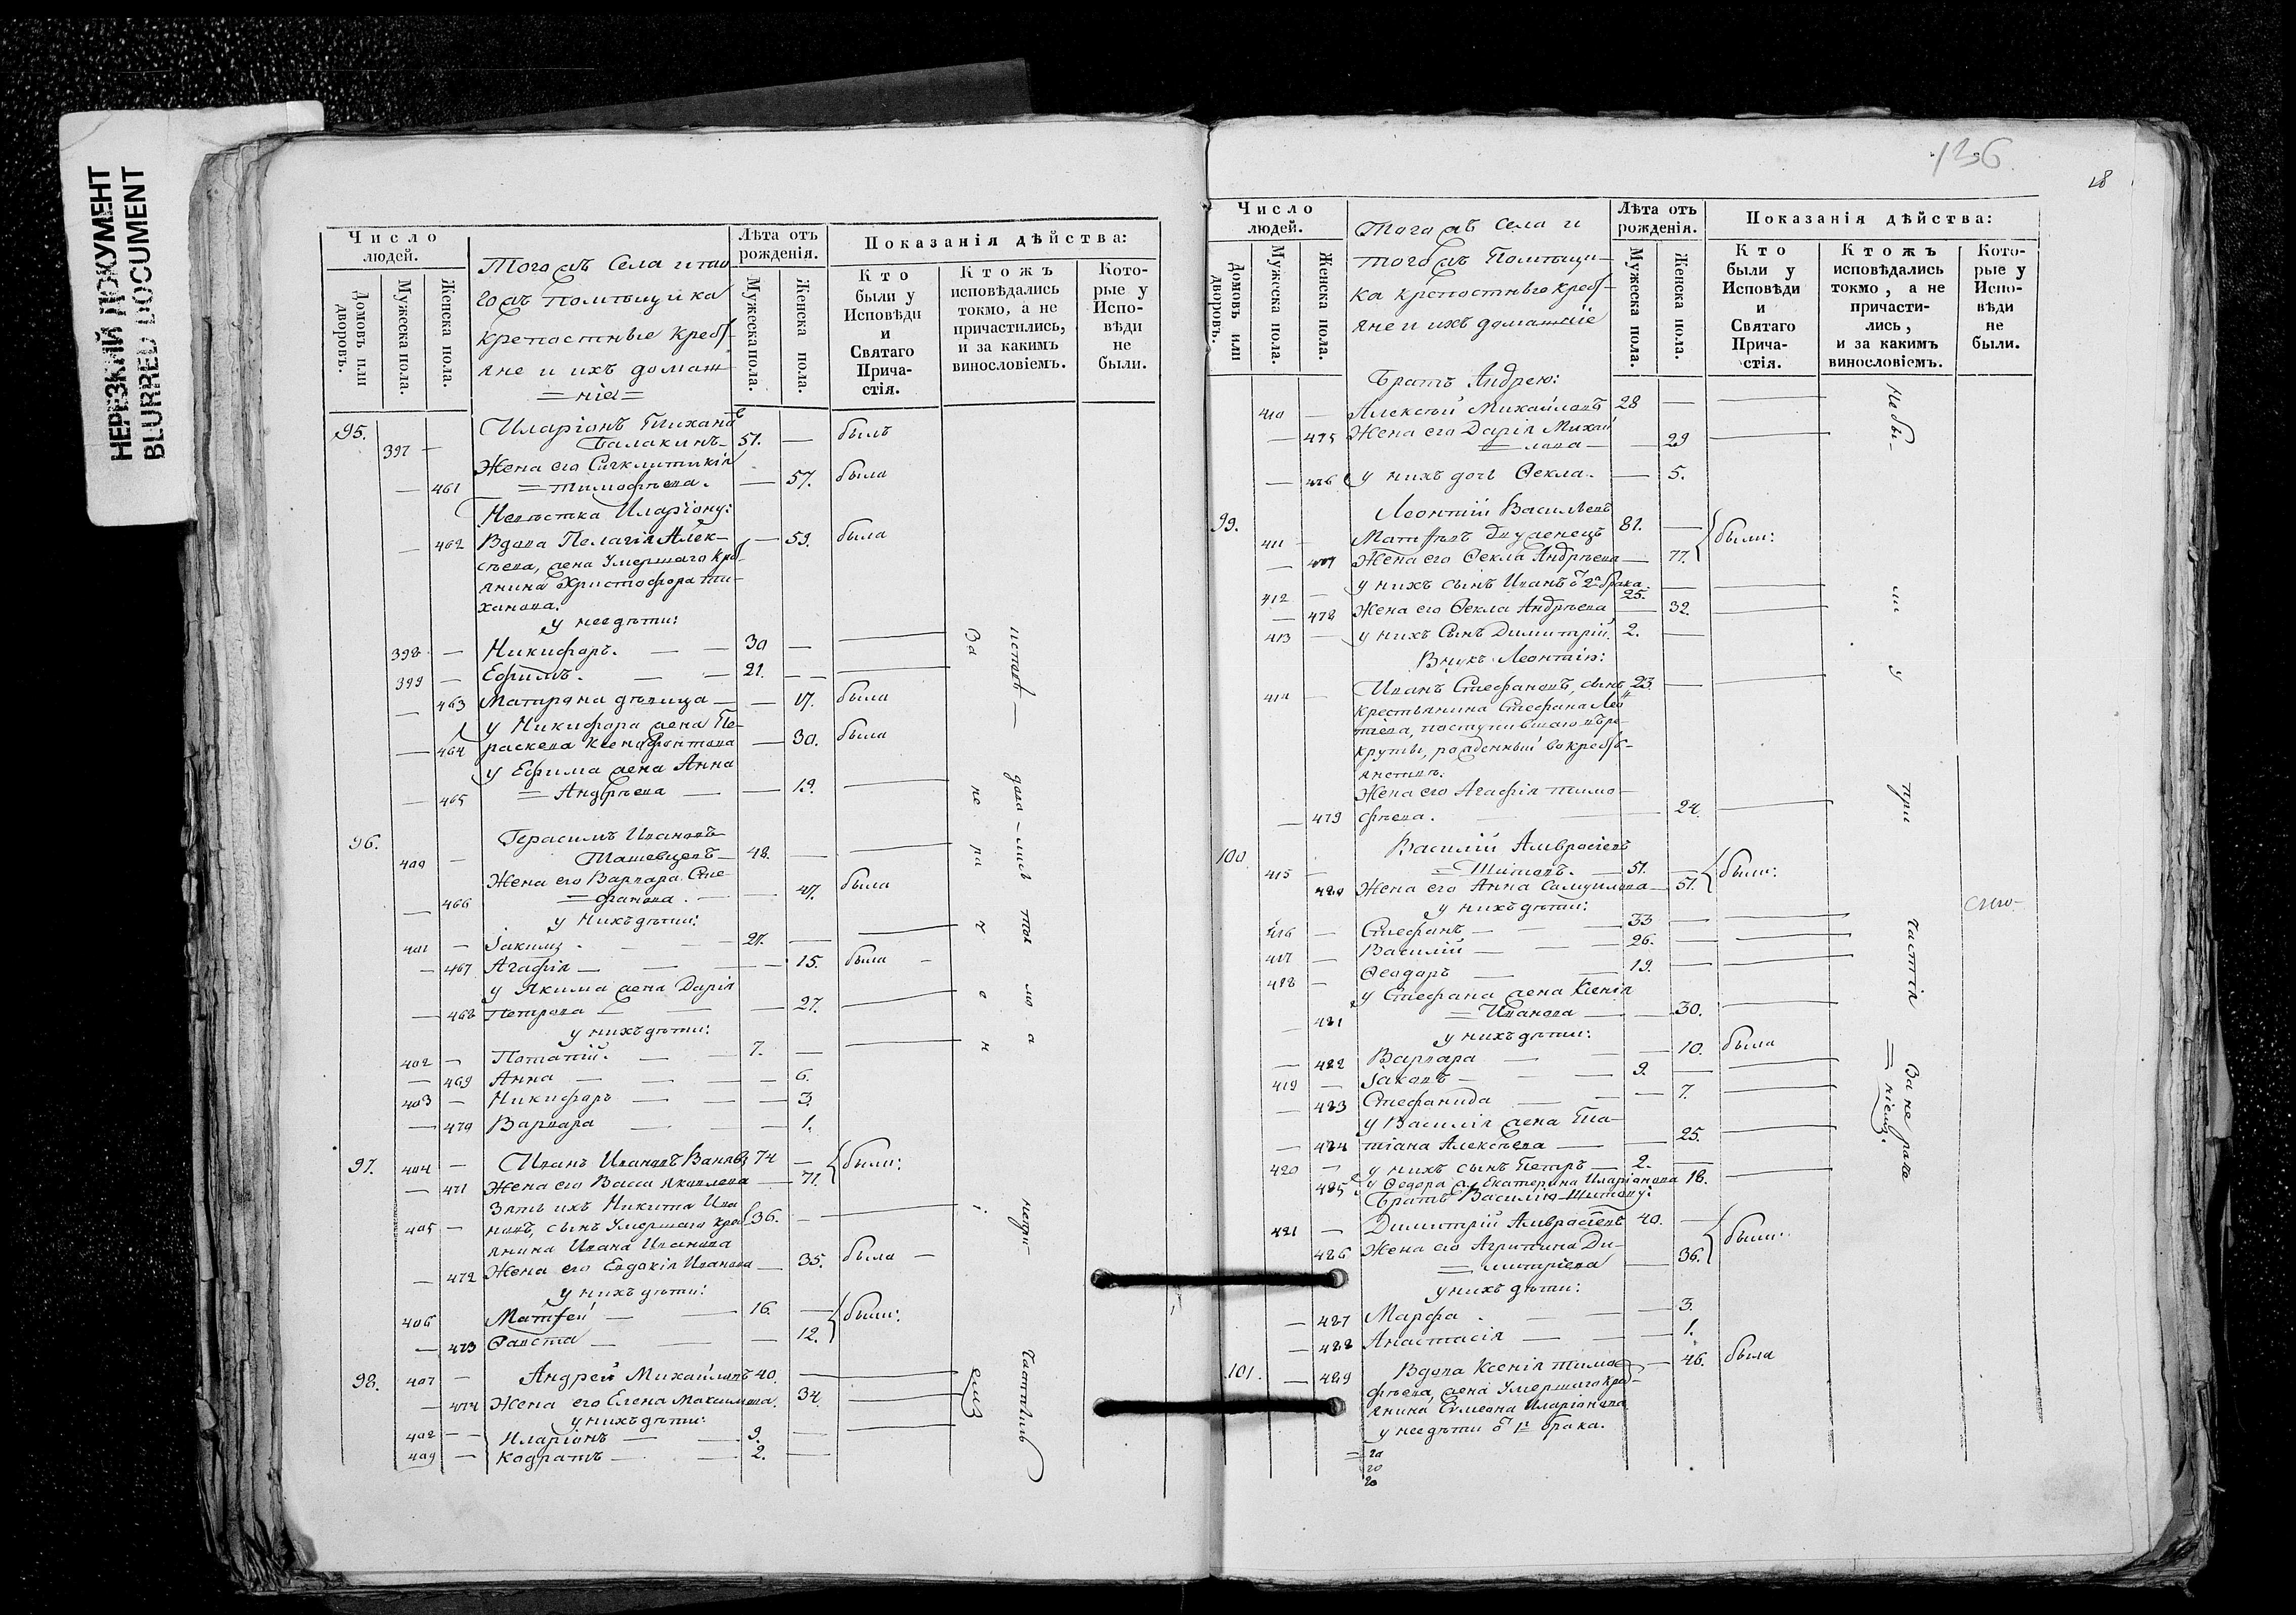 НЕРЕЗКИЙ ДОКУМЕНТ
BLURRED DOCUMENT
Число людей.
Домовъ или дворовъ.
Мужеска пола.
Женска пола.
Тогожъ Села и то
гожъ помѣщика
крепостные кресть
яне и ихъ домаш
=ніе=
Лѣта отъ рожденія.
Мужеска пола.
Женска пола.
Показанія дѣйства:
Кто были у Исповѣди и Святаго Причастія.
Ктожъ исповѣдались токмо, а не причастились, и за какимъ винословіемъ.
Которые у Исповѣди не были.
95. Иларіонъ Тихано
397 — Балакинъ — 51. — былъ
Жена его Сигклитикія
— 461 = Тимофѣева. — 57. была
Невѣстка Иларіону:
— 462 Вдова Пелагія Алек- — 59. была
сѣева, жена Умершаго кре
янина Христофора Ти-
ханова.
у нее дѣти:
398 — Никифоръ. — 30 —
399 — Ефимъ. — 21. —
— 463 Матрона дѣвица — 17. была
у Никифора жена Па-
— 464 раскева Ксенофонтова — 30. была
у Ефима жена Анна
— 465 = Андрѣева — 19.
96. Герасимъ Ивановъ
400 — Ташевцевъ — 48. —
Жена его Варвара Сте-
— 466 = фанова. — 47. была
у нихъ дѣти:
401 — Іакимъ. — 27. —
— 467 Агафія — 15. была
у Якима жена Дарія
— 468 Петрова — 27.
у нихъ дѣти:
402 — Потапій. — 7. —
— 469 Анна — 6.
403 — Никифоръ — 3.
— 470 Варвара — 1.
97. 404 — Иванъ Ивановъ 74 — были:
— 471 Жена его Васса Яковлева — 71.
Зять ихъ Никита Ива
405 — новъ, сынъ Умершаго крес 36. —
янина Ивана Иванова
— 472 Жена его Евдокія Иванова — 35. была —
у нихъ дѣти:
406 Матѳей — 16. — были:
— 473 Фавста — 12.
98. 407 — Андрей Михайловъ 40. —
— 474 Жена его Елена Максимова. 34.
у нихъ дѣти:
408 — Иларіонъ — 9. —
409 — Кодратъ — 2. —
136
28
Число людей.
Домовъ или дворовъ.
Мужеска пола.
Женска пола.
Тогожъ Села и
тогожъ Помѣщи-
ка крепостные крес-
яне и ихъ домашніе
Лѣта отъ рожденія.
Мужеска пола.
Женска пола.
Показанія дѣйства:
Кто были у Исповѣди и Святаго Причастія.
Ктожъ исповѣдались токмо, а не причастились, и за какимъ винословіемъ.
Которые у Исповѣди не были.
Братъ Андрею:
410 — Алексѣй Михайловъ 28 —
— 475 Жена его Дарія Михай
= лова — 29
— 476 у нихъ дочь Ѳекла. — 5.
Леонтій Васильевъ
99. 411 — Матѳѣевъ двуженецъ 81. — были:
— 477 Жена его Ѳекла Андрѣева — 77.
412 — у нихъ сынъ Иванъ 2 брака 25.
— 478 Жена его Ѳекла Андрѣева — 32.
413 — у нихъ Сынъ Димитрій. 2. —
Внукъ Леонтію:
414 — Иванъ Стефановъ, сынъ 23. —
крестьянина Стефана Лео
тіева, поступившаго въ ре-
круты, рожденный въ крес-
янствѣ.
Жена его Агафія Тимо
— 479 фѣева. — 24.
100. Василій Амвросіевъ
415 — = Титовъ. — 51. — были:
480 Жена его Анна Самуилова — 51.
у нихъ дѣти:
416 — Стефанъ — 33 —
417 — Василій — 26. —
418 — Ѳеодоръ — 19. —
у Стефана жена Ксенія
— 481 = Иванова — 30.
у нихъ дѣти:
— 482 Варвара — 10. была
419 — Іаковъ — 9. —
— 483 Стефанида — 7.
у Василія жена Та-
— 484 тіана Алексѣева — 25.
420 — у нихъ сынъ Петръ — 2. —
485 у Ѳедора ж. Екатерина Иларіонова 18.
Братъ Василію Титову:
421 — Димитрій Амвросіевъ 40. — были:
486 Жена его Агрипина Ди-
= митріева — 36.
у нихъ дѣти:
— 487 Марфа — 3.
— 488 Анастасія — 1.
101. — 489 Вдова Ксенія Тимо — 46. была
фѣева, жена Умершаго крес-
янина Симеона Иларіонова
у нее дѣти 1го брака.